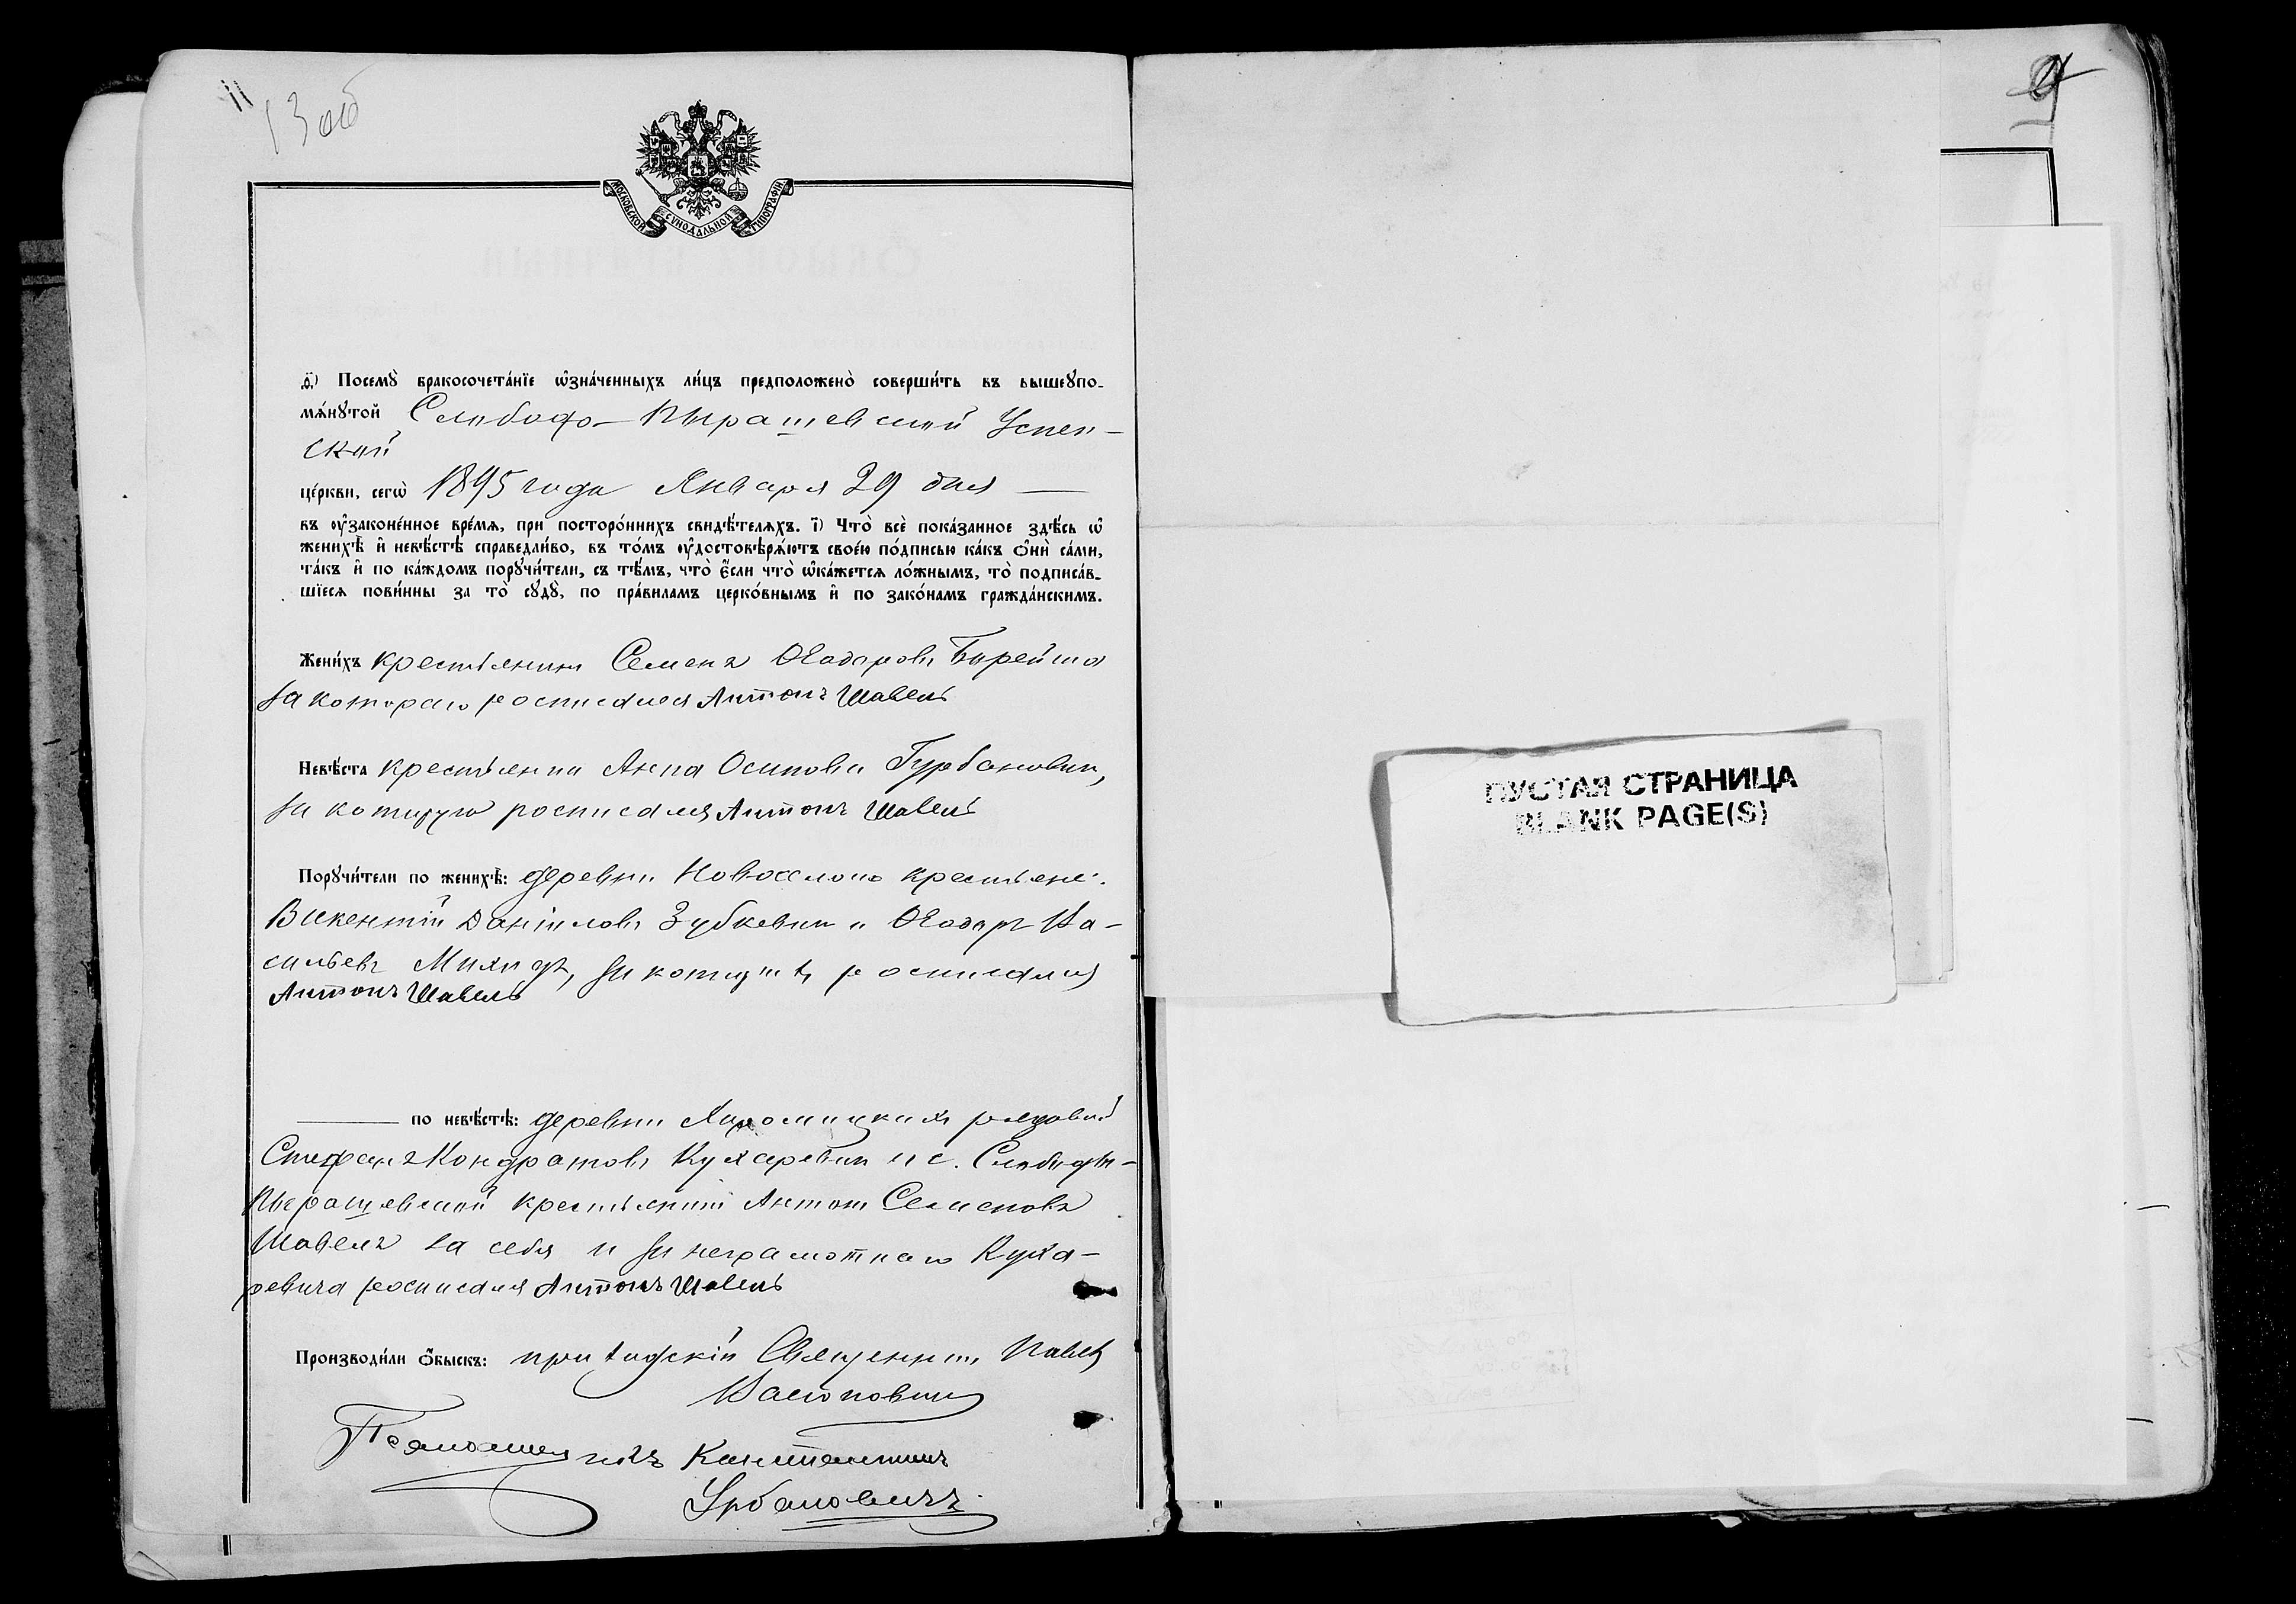 13 об
МОСКОВСКОЙ СѴНОДАЛЬНОЙ ТИПОГРАФІИ
ѳ҃) Посемꙋ̀ бракосочета́нїе ѡ҆зна́ченныхъ ли́цъ предположено̀ соверши́ть въ вышеꙋпо-
мѧ́нꙋтой Слободо-Пырашевской Успен-
ской
це́ркви, сегѡ̀ 1895 года Января 29 дня —
въ ᲂу҆законе́нное вре́мѧ, при посторо́ннихъ свидѣ́телѧхъ. і҃) Что̀ всѐ пока́занное здѣ́сь ѡ҆
женихѣ̀ и҆ невѣ́стѣ справедли́во, въ то́мъ ᲂу҆достовѣрѧ́ютъ свое́ю по́дписью ка́къ ѻ҆нѝ са́ми,
та́къ и҆ по ка́ждомъ порꙋчи́тели, съ тѣ́мъ, что̀ є҆́сли что̀ ѡ҆ка́жетсѧ ло́жнымъ, то̀ подписа́в-
шїесѧ пови́нны за то̀ сꙋдꙋ̀, по пра́виламъ церко́внымъ и҆ по зако́намъ гражда́нскимъ.
Жени́хъ крестьянинъ Семенъ Ѳеодоровъ Борейша
за котораго росписался Антонъ Шавель
Невѣ́ста крестьянка Анна Осипова Гурбановичъ,
за которую росписался Антонъ Шавель
Порꙋчи́тели по женихѣ̀: деревни Новоселокъ крестьяне:
Викентій Даніиловъ Зубкевичъ и Ѳеодоръ Ва-
сильевъ за которыхъ росписался
Антонъ Шавель
по невѣ́стѣ: деревни рядовой
Стефанъ Кондратовъ Кухаревичъ и с. Слободы-
Пырашевской крестьянинъ Антонъ Семеновъ
Шавель за себя и за неграмотнаго Куха-
ревича росписался Антонъ Шавель
Производи́ли ѻ҆́быскъ: приходскій Священникъ Павелъ
Псаломщикъ Константинъ
Урбановичъ
ПУСТАЯ СТРАНИЦА
BLANK PAGE(S)